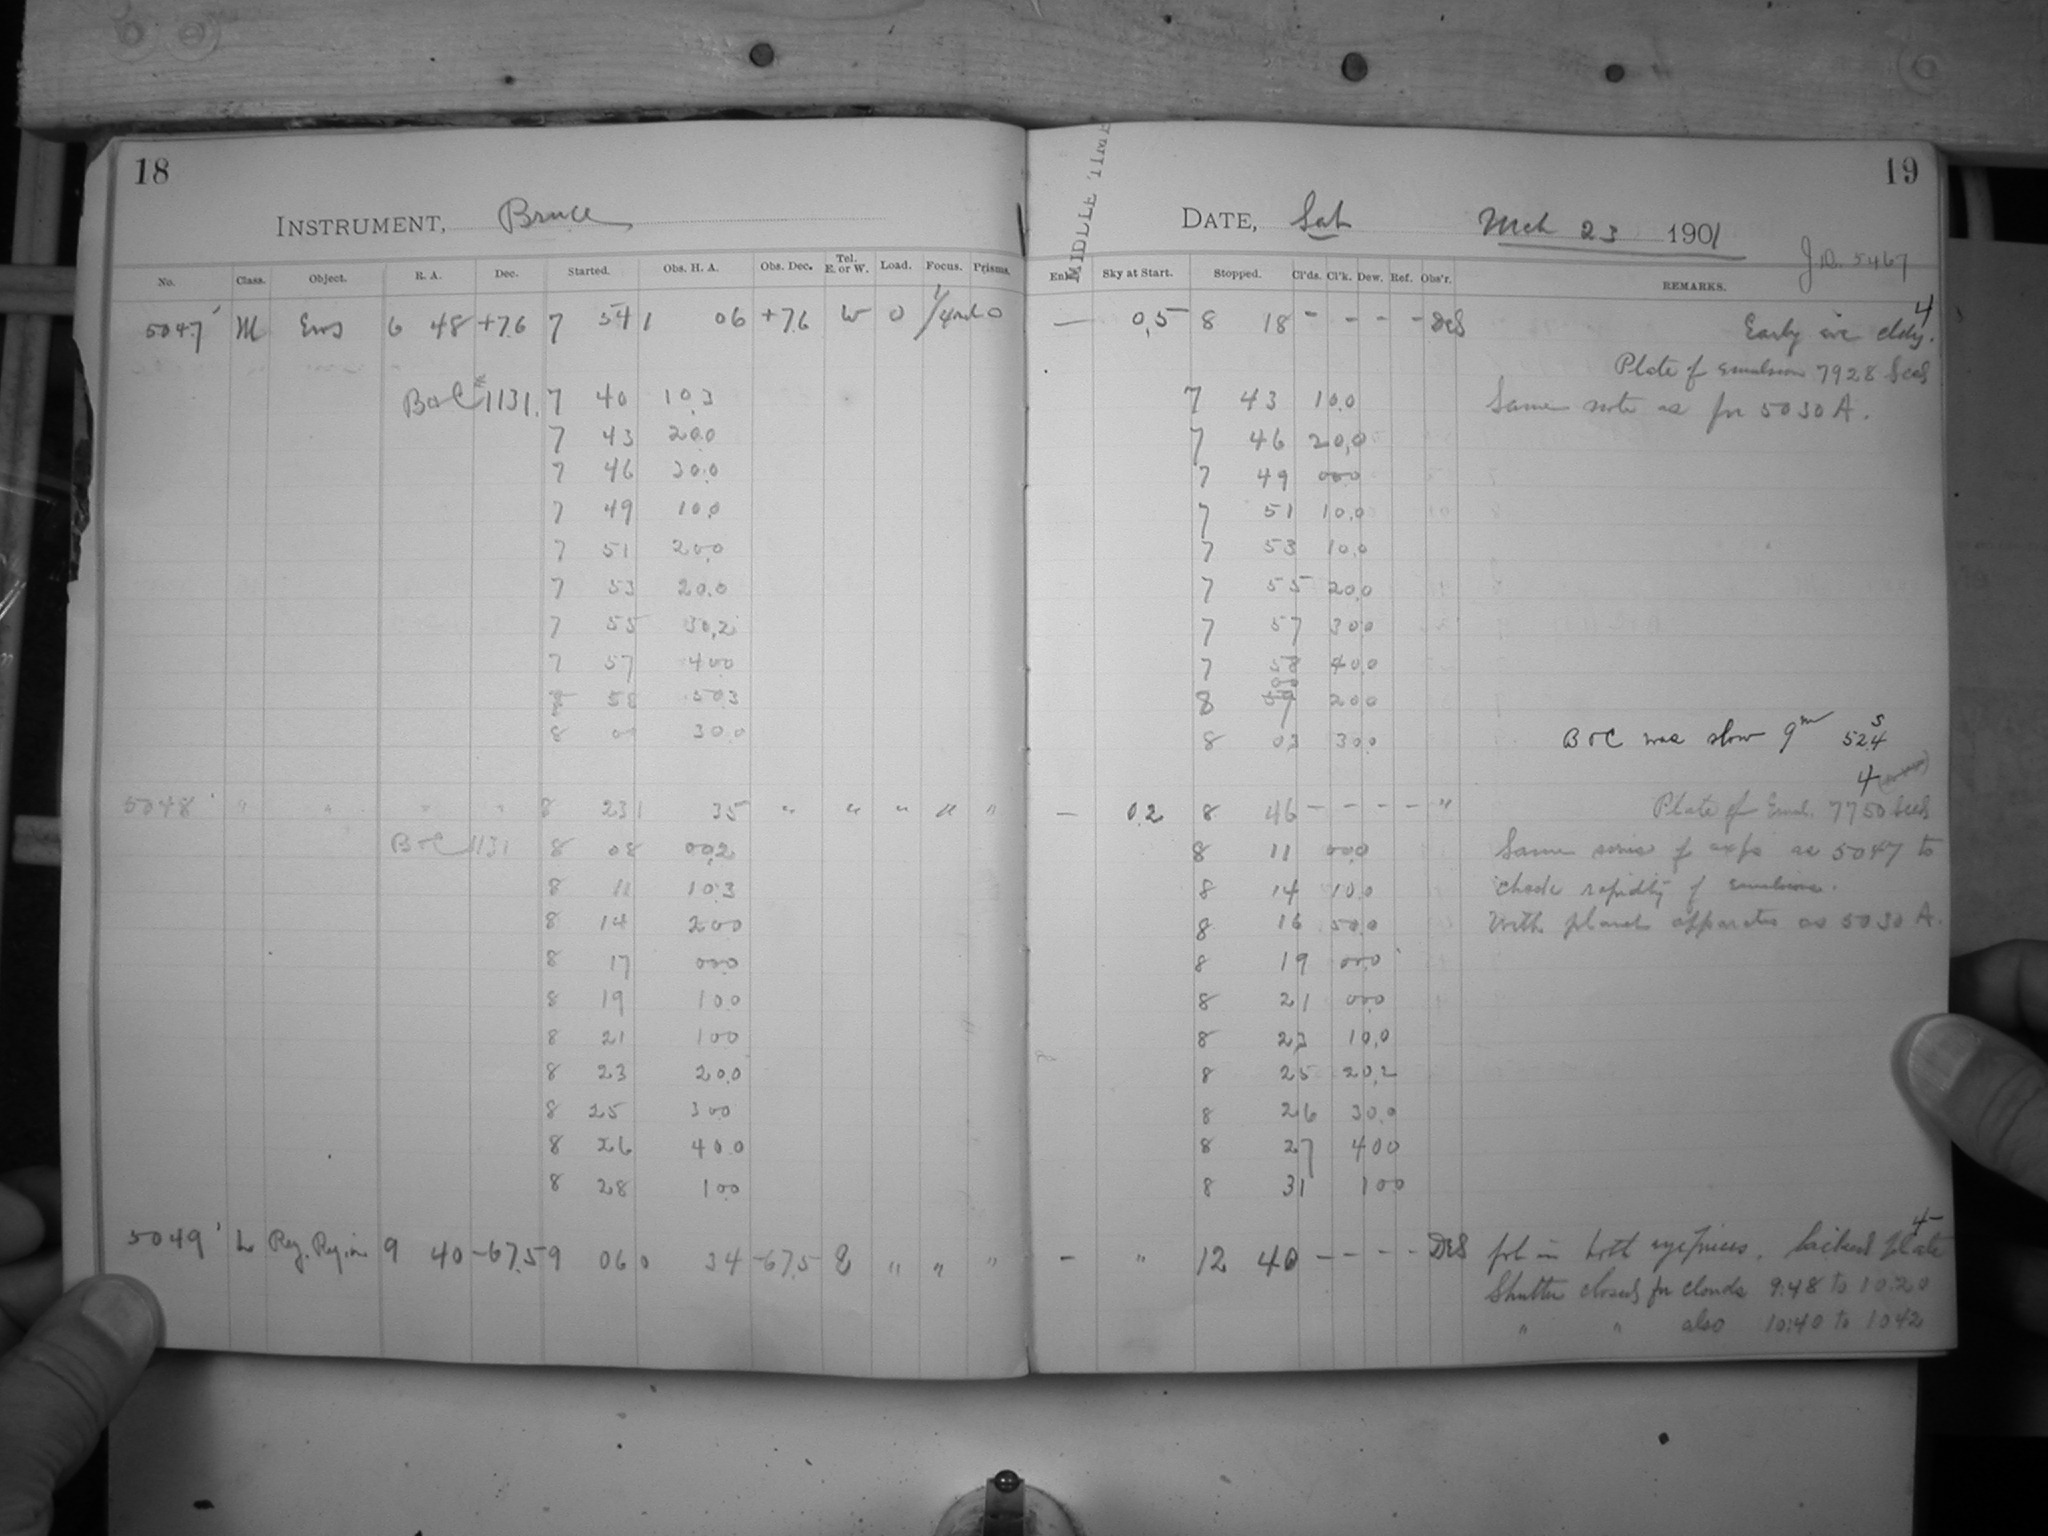 18
INSTRUMENT, Bruce
No. Class. Object. R. A. Dec. Started. Obs. H. A. Obs. Dec. Tel. E. or W. Load. Focus. Prisms.
5047 M Eros 6 48 +7.6 7 54 1 06 +7.6 W 0 0
B & C # 1131. 7 40 10.3
7 43 20.0
7 46 30.0
7 49 10.0
7 51 20.0
7 53 20.0
7 55 30.2
7 57 40.0
8 58 50.3
8 01 30.0
5048 " " " " 8 23 1 35 " " " " "
B & C 1131 8 08 00.2
8 11 10.3
8 14 20.0
8 17 00.0
8 19 10.0
8 21 10.0
8 23 20.0
8 25 30.0
8 26 40.0
8 28 10.0
5049 L Reg. Region 9 40 -67.5 9 06 0 34 -67.5 E " " "
MIDDLE TIME
19
DATE, Sat Mch 23 1901
J.D. 5467
Sky at Start. Stopped. Cl'ds. Cl'k. Dew. Ref. Obs'r. REMARKS.
— 0.5 8 18 - - - - DeS Early eve cldy. 4
Plate of emulsion 7928 Seed
7 43 10.0 Same note as for 5030 A.
7 46 20.0
7 49 00.0
7 51 10.0
7 53 10.0
7 55 20.0
7 57 30.0
7 58 40.0
8 00 20.0
8 03 30.0 B & C was slow 9m 52.4s
4
— 0.2 8 46 - - - - " Plate of Emul. 7750 Seed
8 11 00.0 Same series of exps as 5047 to
8 14 10.0 check rapidity of emulsions.
8 16 50.0 With planet apparatus as 5030 A.
8 19 00.0
8 21 00.0
8 23 10.0
8 25 20.2
8 26 30.0
8 27 40.0
8 31 10.0
4
- " 12 40 - - - - DeS in both eyepieces. backed plate
Shutter closed for clouds 9:48 to 10:20
" " also 10:40 to 10 42